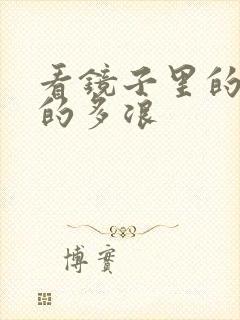 看镜子里的
的多浪
博實